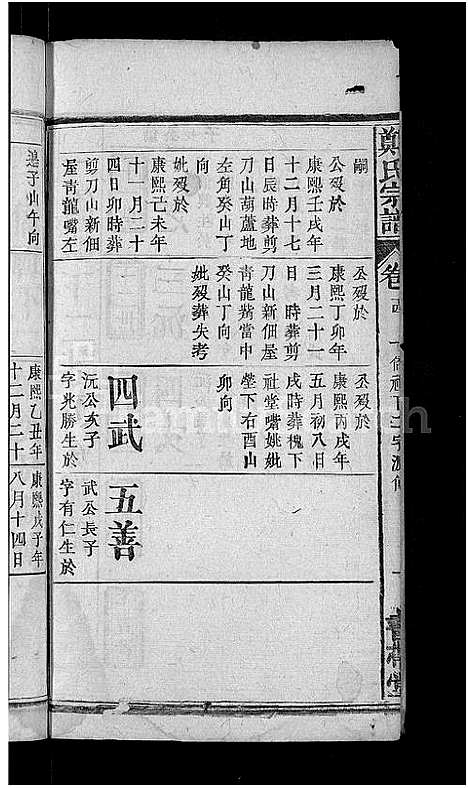 鄭氏宗譜
卷
嗣
公歿於
康熙壬戌年
十二月十七
日辰時葬剪
刀山葫蘆地
左角癸山丁
向
妣歿於
康熙己未年
十一月二十
四日卯時葬
剪刀山新佃
屋青龍嘴左
公歿於
康熙丁卯年
三月二十一
日 時葬剪
刀山新佃屋
青龍嘴當中
癸山丁向
妣歿葬失考
公歿於
康熙丙戌年
五月初八日
戌時葬槐下
社堂嘴姚妣
塋下右酉山
卯向
四武
沅公次子
字兆勝生於
五善
武公長子
字有仁生於
邉子山午向
康熙乙丑年
十二月二十
康熙戊子年
八月十四日